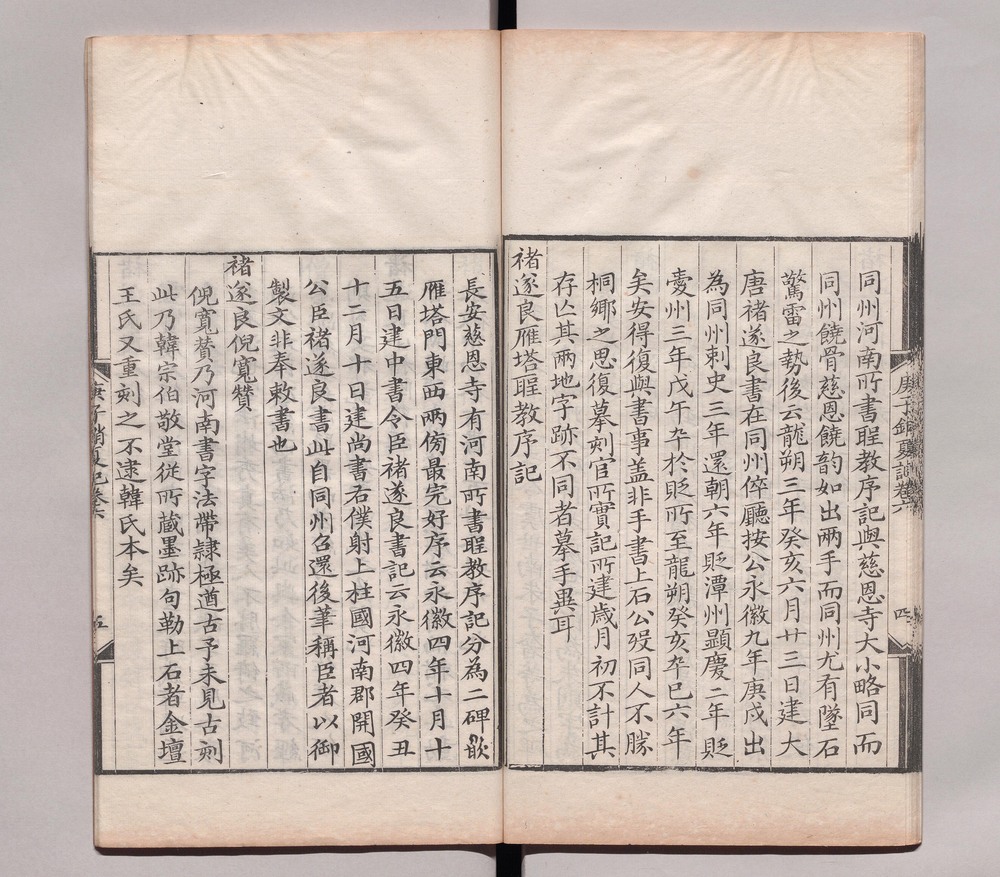 同州河南所書聖教序記與慈恩寺大小略同而
同州饒骨慈恩饒韵如出兩手而同州尤有墜石
驚雷之勢後云龍朔三年癸亥六月廿三日建大
唐褚遂良書在同州倅廳按公永徽九年庚戍出
為同州刺史三年還朝六年貶潭州顯慶二年貶
愛州三年戊午卒於貶所至龍朔癸亥卒已六年
矣安得復與書事盖非手書上石公歿同人不勝
桐鄉之思復摹刻官所實記所建歲月初不計其
存亾其兩地字跡不同者摹手異耳
褚遂良雁塔聖教序記
庚子銷夏記卷六
四
長安慈恩寺有河南所書聖教序記分為二碑嵌
雁塔門東西兩傍最完好序云永徽四年十月十
五日建中書令臣褚遂良書記云永徽四年癸丑
十二月十日建尚書右僕射上柱國河南郡開國
公臣褚遂良書此自同州召還後筆稱臣者以御
製文非奉敕書也
褚遂良倪寬贊
倪寬贊乃河南書字法帶隸極遒古予未見古刻
此乃韓宗伯敬堂從所藏墨跡句勒上石者金壇
王氏又重刻之不逮韓氏本矣
庚子銷夏記卷六
五